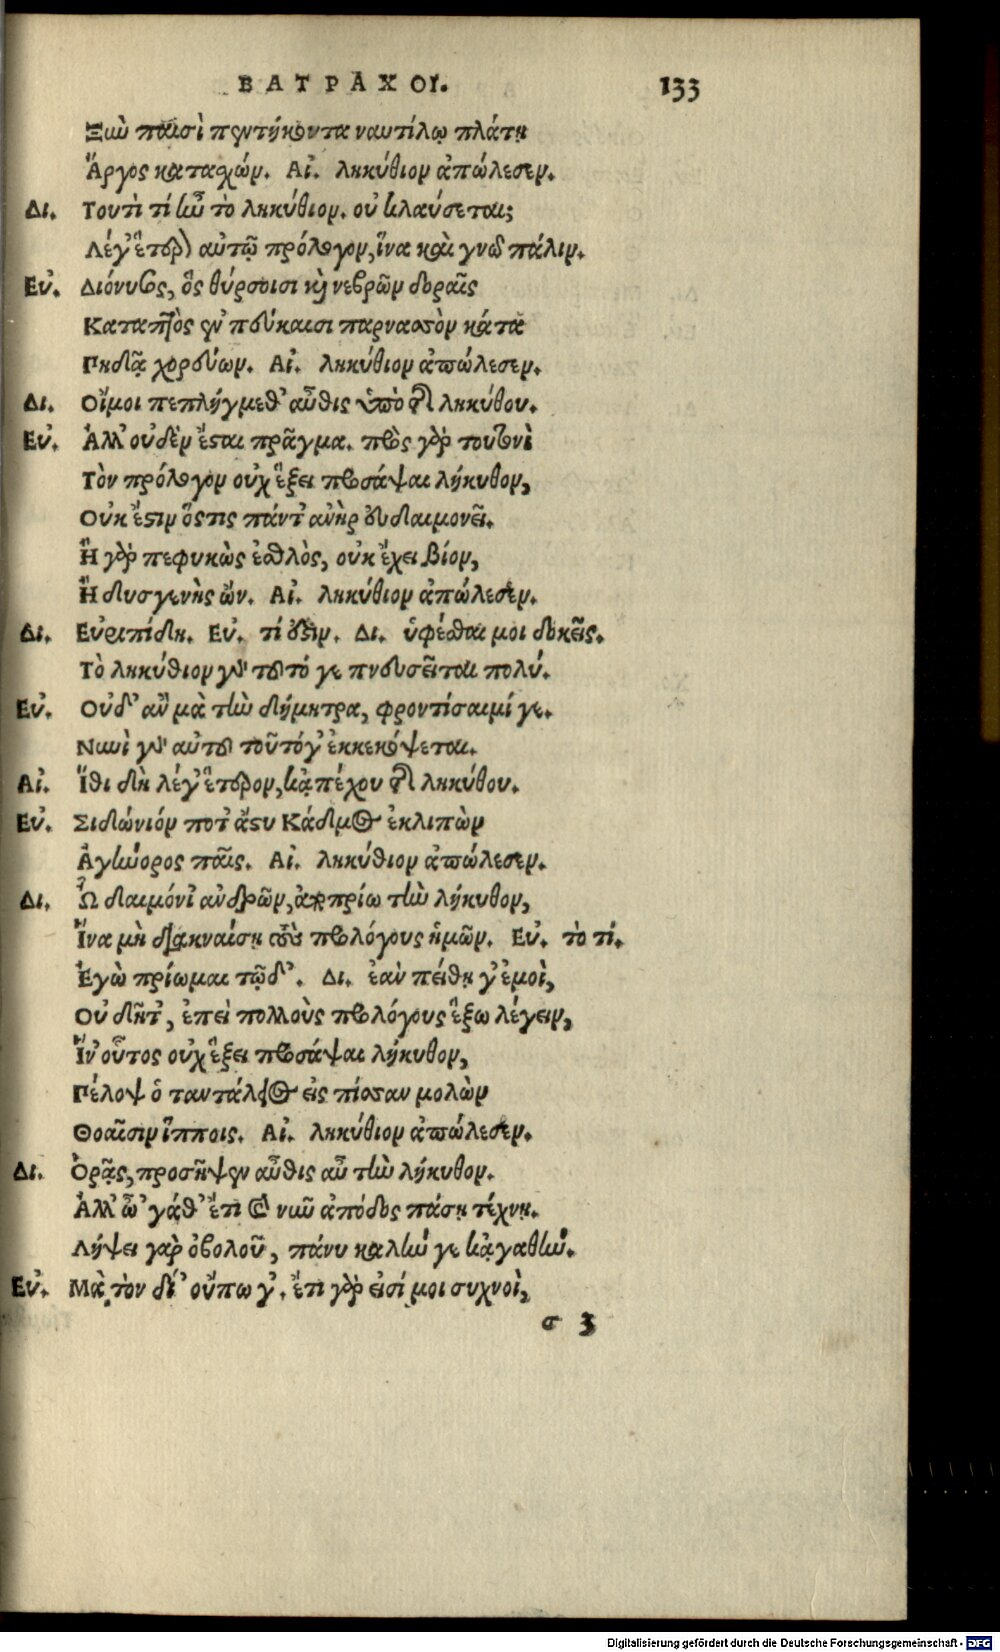 ΒΑΤΡΑΧΟΙ. 133
Ξὺν παισὶ πεντήκοντα ναυτίλῳ πλάτῃ
Ἄργος κατασχών. Αἰ. ληκύθιον ἀπώλεσεν.
Δι. Τουτὶ τί ἦν τὸ ληκύθιον. οὐ κλαύσεται;
Λέγ' ἕτερον αὐτῷ πρόλογον, ἵνα καὶ γνῶ πάλιν.
Εὐ. Διόνυσος, ὃς θύρσοισι καὶ νεβρῶν δοραῖς
Καταπτὸς ἐν πεύκαισι παρνασσὸν κάτα
Πηδᾷ χορεύων. Αἰ. ληκύθιον ἀπώλεσεν.
Δι. Οἴμοι πεπλήγμεθ' αὖθις ὑπὸ τῆς ληκύθου.
Εὐ. Ἀλλ' οὐδὲν ἔσται πρᾶγμα. πρὸς γὰρ τουτονὶ
Τὸν πρόλογον οὐχ ἕξει προσάψαι λήκυθον,
Οὐκ ἔστιν ὅστις πάντ' ἀνὴρ εὐδαιμονεῖ.
Ἢ γὰρ πεφυκὼς ἐσθλὸς, οὐκ ἔχει βίον,
Ἢ δυσγενὴς ὤν. Αἰ. ληκύθιον ἀπώλεσεν.
Δι. Εὐριπίδη. Εὐ. τί ἔστιν. Δι. ὑφέσθαι μοι δοκεῖς.
Τὸ ληκύθιον γὰρ τοῦτό γε πνευσεῖται πολύ.
Εὐ. Οὐδ' ἂν μὰ τὴν δήμητρα, φροντίσαιμί γε.
Νυνὶ γὰρ αὐτοῦ τοῦτό γ' ἐκκεκόψεται.
Αἰ. Ἴθι δὴ λέγ' ἕτερον, κἀπέχου τῆς ληκύθου.
Εὐ. Σιδώνιόν ποτ' ἄστυ Κάδμος ἐκλιπὼν
Ἀγήνορος παῖς. Αἰ. ληκύθιον ἀπώλεσεν.
Δι. Ὦ δαιμόνι' ἀνδρῶν, ἀποπρίω τὴν λήκυθον,
Ἵνα μὴ διακναίσῃ τοὺς προλόγους ἡμῶν. Εὐ. τὸ τί.
Ἐγὼ πρίωμαι τῷδ'. Δι. ἐὰν πείθῃ γ' ἐμοὶ,
Οὐ δῆτ', ἐπεὶ πολλοὺς προλόγους ἕξω λέγειν,
Ἵν' οὗτος οὐχ ἕξει προσάψαι λήκυθον,
Πέλοψ ὁ ταντάλειος εἰς πίσσαν μολὼν
Θοαῖσιν ἵπποις. Αἰ. ληκύθιον ἀπώλεσεν.
Δι. Ὁρᾷς, προσῆψεν αὖθις αὖ τὴν λήκυθον.
Ἀλλ' ὦ 'γάθ' ἔτι καὶ νῦν ἀπόδος πάσῃ τέχνῃ.
Λήψει γὰρ ὀβολοῦ, πάνυ καλήν γε κἀγαθήν.
Εὐ. Μὰ τὸν δί' οὔπω γ'. ἔτι γὰρ εἰσί μοι συχνοὶ,
σ 3
Digitalisierung gefördert durch die Deutsche Forschungsgemeinschaft - DFG